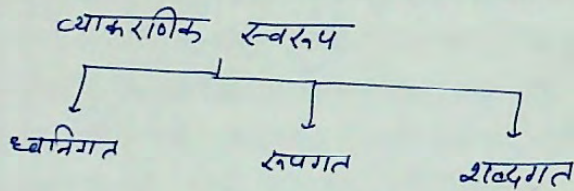 व्याकरणिक स्वरूप
ध्वनिगत रूपगत शब्दगत